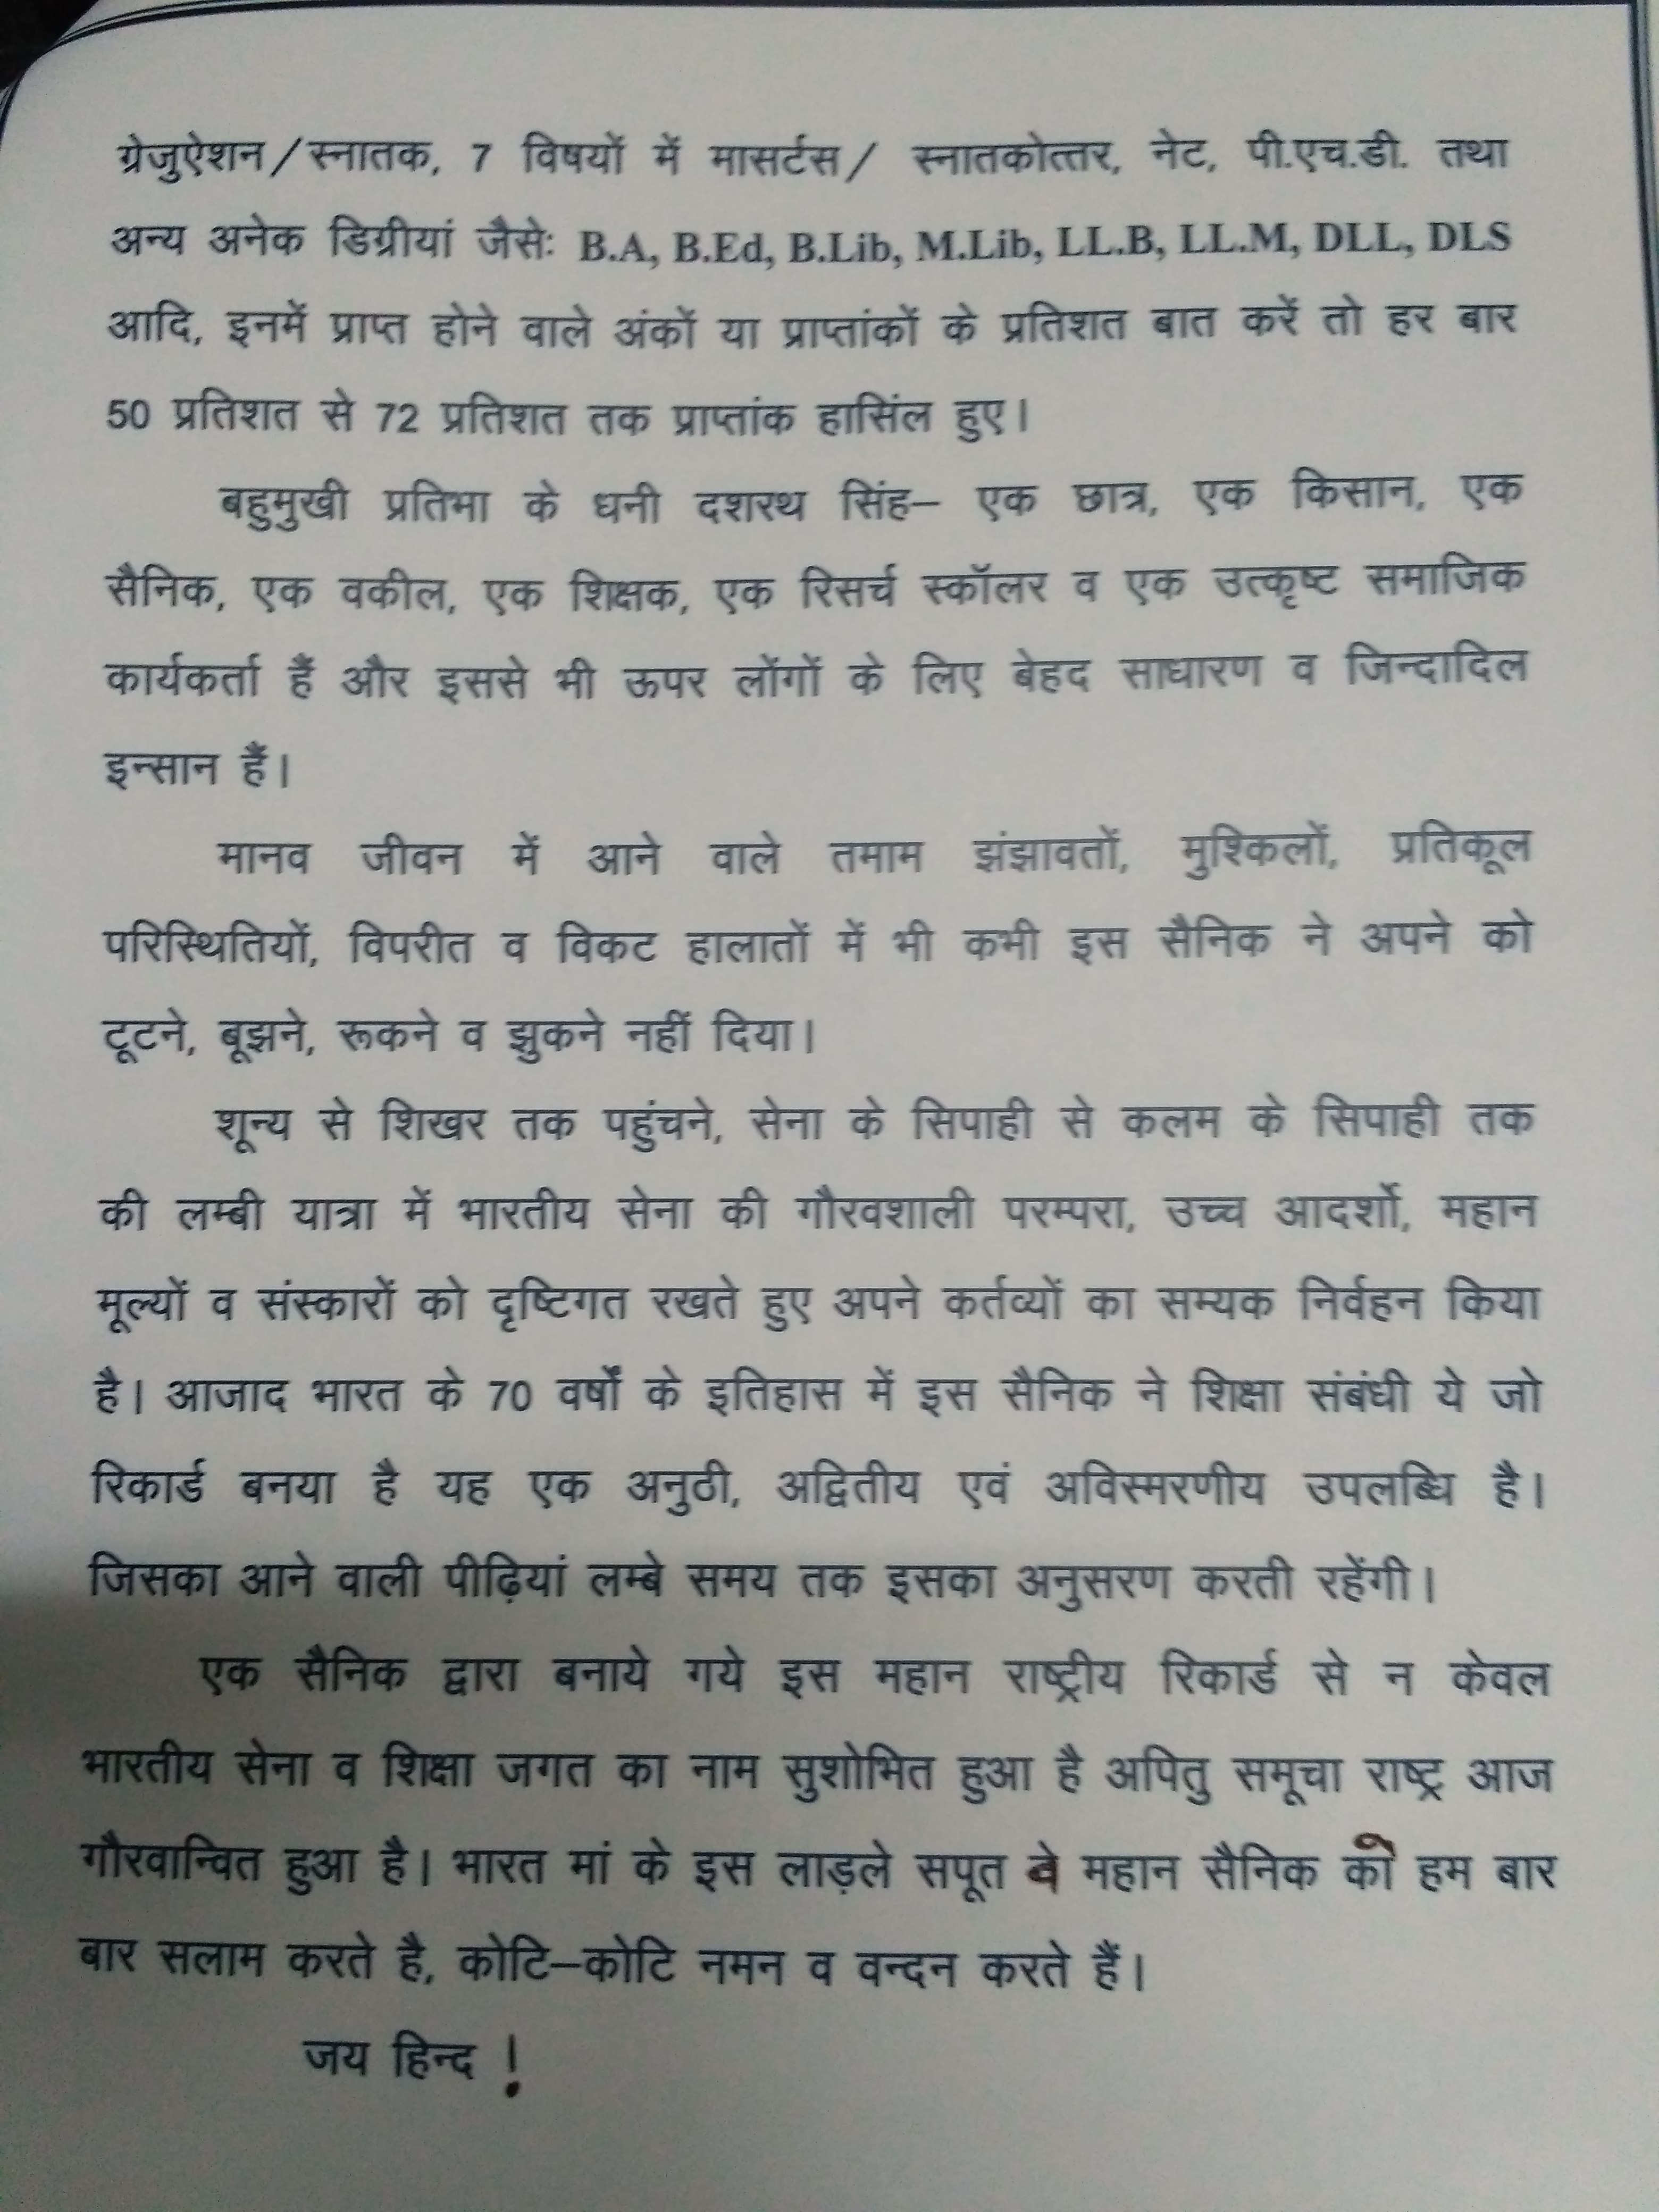 ग्रेजुऐशन/स्नातक, 7 विषयों में मासर्टस/ स्नातकोत्तर, नेट, पी.एच.डी. तथा
अन्य अनेक डिग्रीयां जैसेः B.A, B.Ed, B.Lib, M.Lib, LL.B, LL.M, DLL, DLS
आदि, इनमें प्राप्त होने वाले अंकों या प्राप्तांकों के प्रतिशत बात करें तो हर बार
50 प्रतिशत से 72 प्रतिशत तक प्राप्तांक हासिंल हुए।
बहुमुखी प्रतिभा के धनी दशरथ सिंह– एक छात्र, एक किसान, एक
सैनिक, एक वकील, एक शिक्षक, एक रिसर्च स्कॉलर व एक उत्कृष्ट समाजिक
कार्यकर्ता हैं और इससे भी ऊपर लोंगों के लिए बेहद साधारण व जिन्दादिल
इन्सान हैं।
मानव जीवन में आने वाले तमाम झंझावतों, मुश्किलों, प्रतिकूल
परिस्थितियों, विपरीत व विकट हालातों में भी कभी इस सैनिक ने अपने को
टूटने, बूझने, रूकने व झुकने नहीं दिया।
शून्य से शिखर तक पहुंचने, सेना के सिपाही से कलम के सिपाही तक
की लम्बी यात्रा में भारतीय सेना की गौरवशाली परम्परा, उच्च आदर्शो, महान
मूल्यों व संस्कारों को दृष्टिगत रखते हुए अपने कर्तव्यों का सम्यक निर्वहन किया
है। आजाद भारत के 70 वर्षों के इतिहास में इस सैनिक ने शिक्षा संबंधी ये जो
रिकार्ड बनया है यह एक अनुठी, अद्वितीय एवं अविस्मरणीय उपलब्धि है।
जिसका आने वाली पीढ़ियां लम्बे समय तक इसका अनुसरण करती रहेंगी।
एक सैनिक द्वारा बनाये गये इस महान राष्ट्रीय रिकार्ड से न केवल
भारतीय सेना व शिक्षा जगत का नाम सुशोभित हुआ है अपितु समूचा राष्ट्र आज
गौरवान्वित हुआ है। भारत मां के इस लाड़ले सपूत व महान सैनिक को हम बार
बार सलाम करते है, कोटि–कोटि नमन व वन्दन करते हैं।
जय हिन्द !